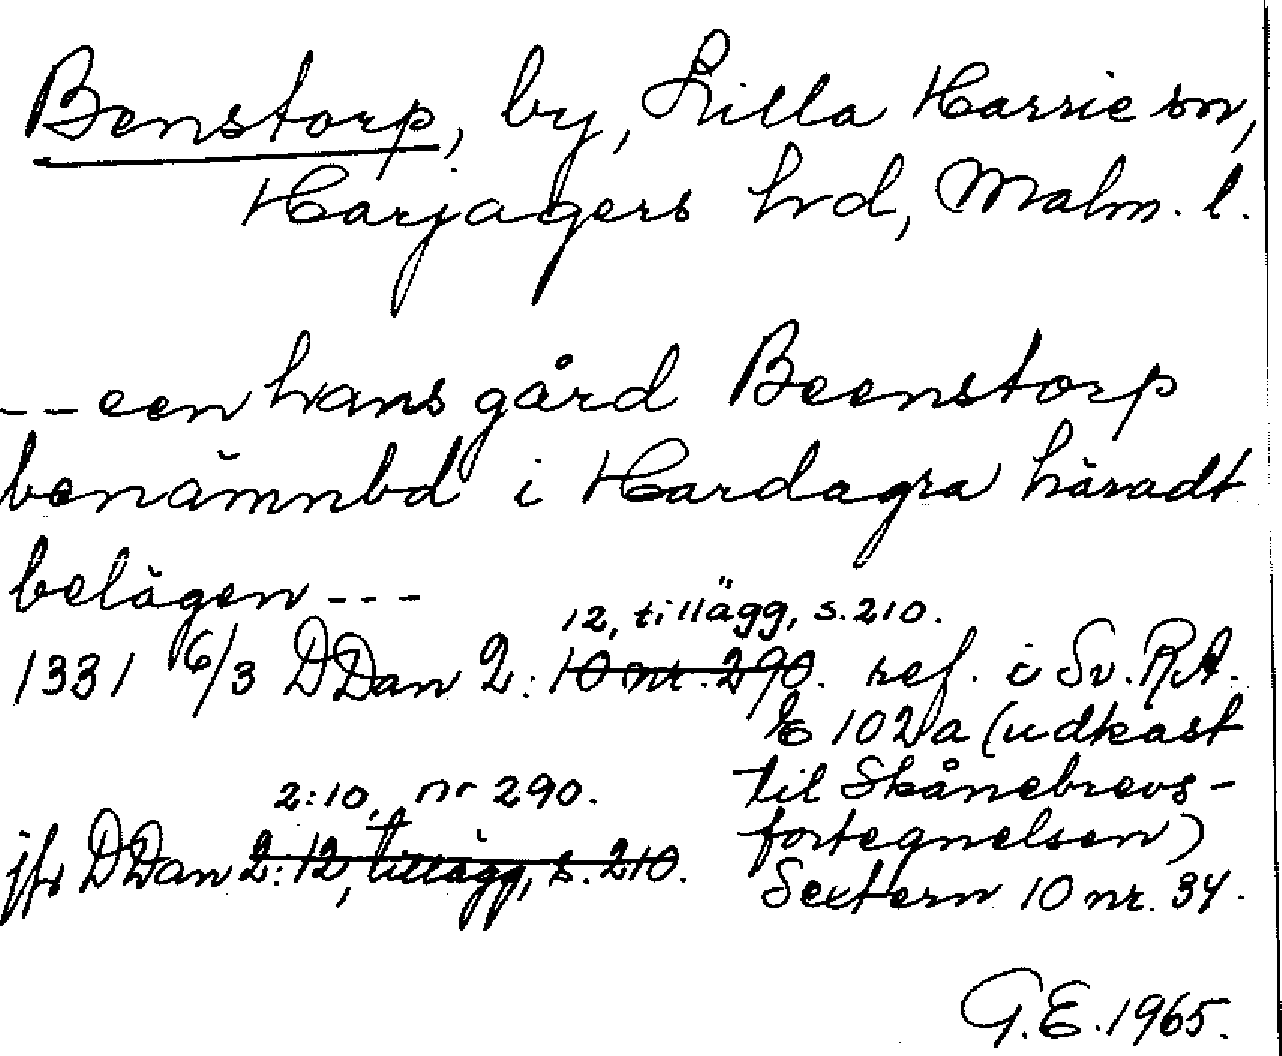 Benstorp, by, Lilla Harrie sn,
Harjagers hd, Malm. l.
--een hans gård Beenstorp
benämnbd i Hardagra häradt
belägen---
12, tillägg, s. 210.
1331 6/3 DDan 2: 10 nr. 290. ref. i Sv. RA.
E 102a (udkast
til Skånebrevs-
fortegnelsen)
Sextern 10 nr. 34.
2:10, nr 290.
jfr DDan 2:12, tillägg, s. 210.
G.E. 1965.